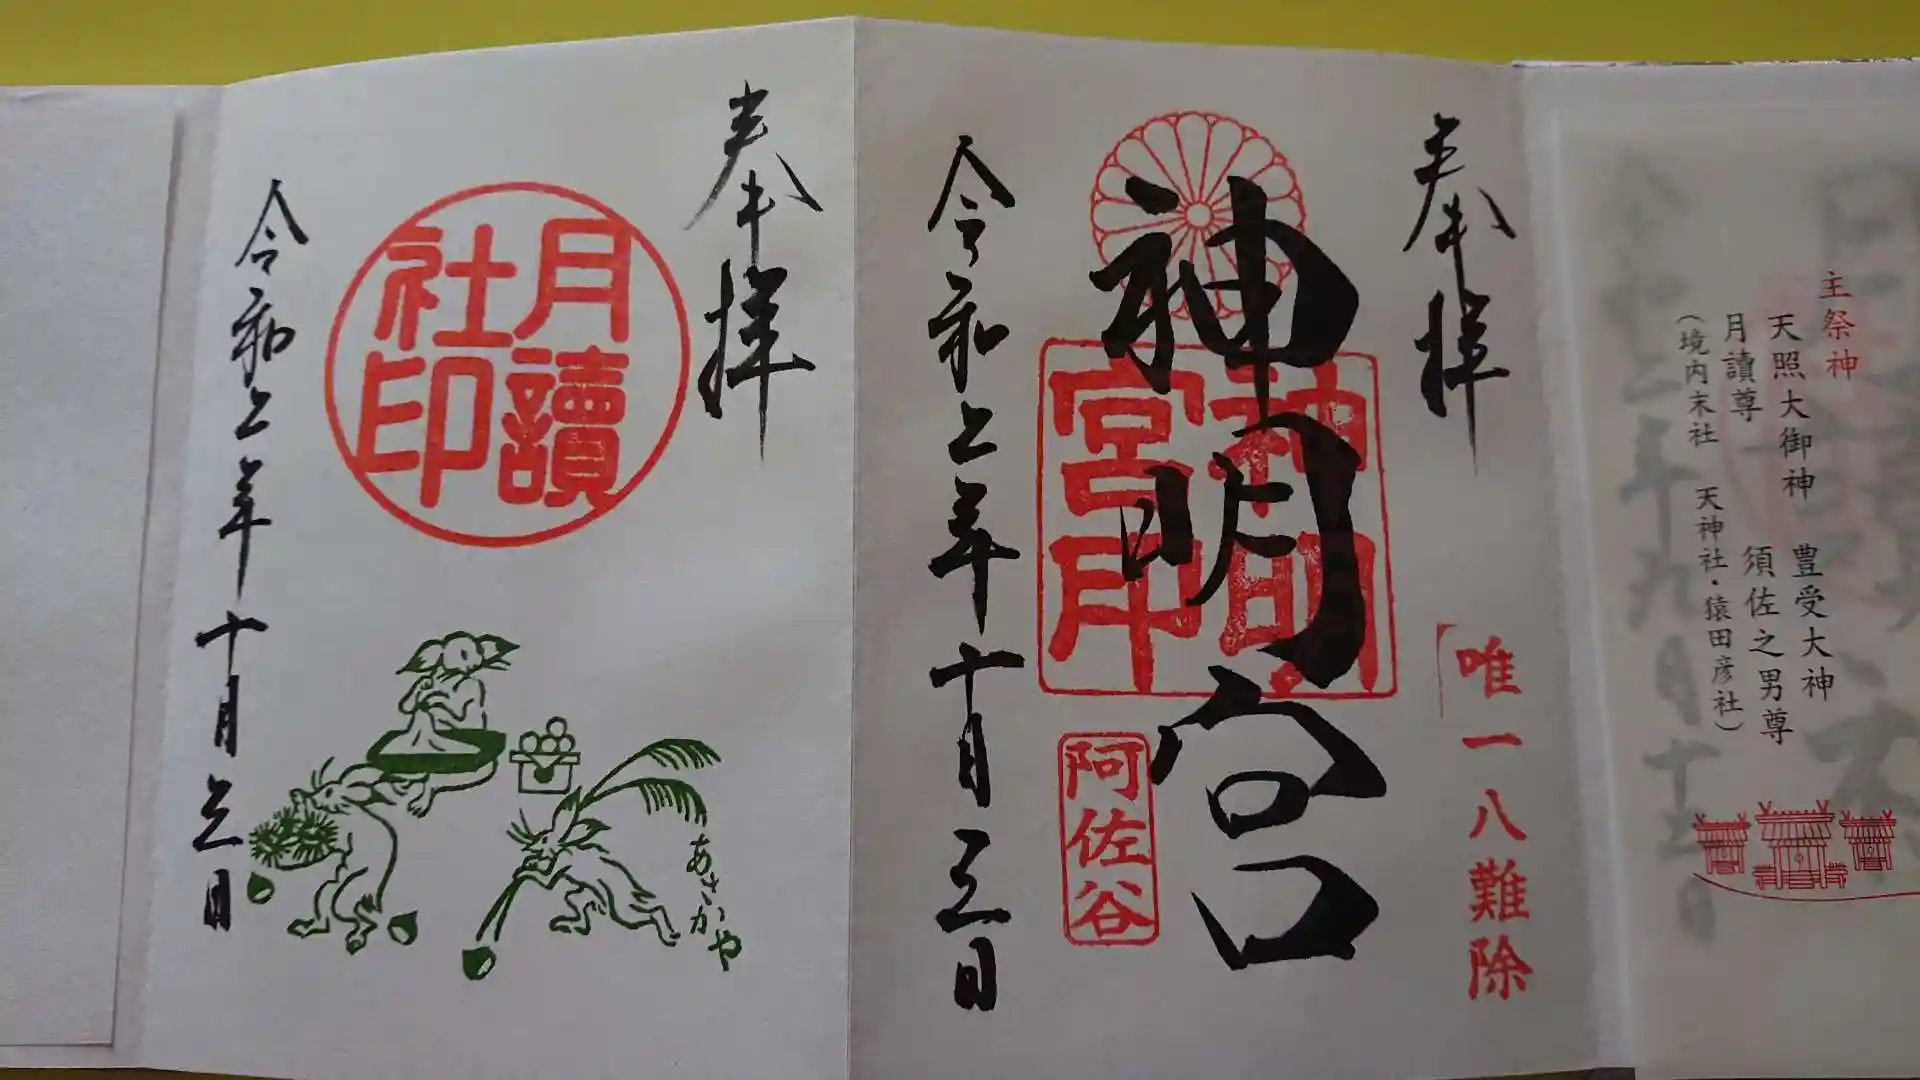 主祭神
天照大御神　豊受大神
月讀尊　須佐之男尊
（境内末社　天神社・猿田彦社）
奉拝
唯一八難除
神明宮
神明
宮印
阿佐谷
令和二年十月三日
奉拝
月讀
社印
あさかや
令和二年十月三日